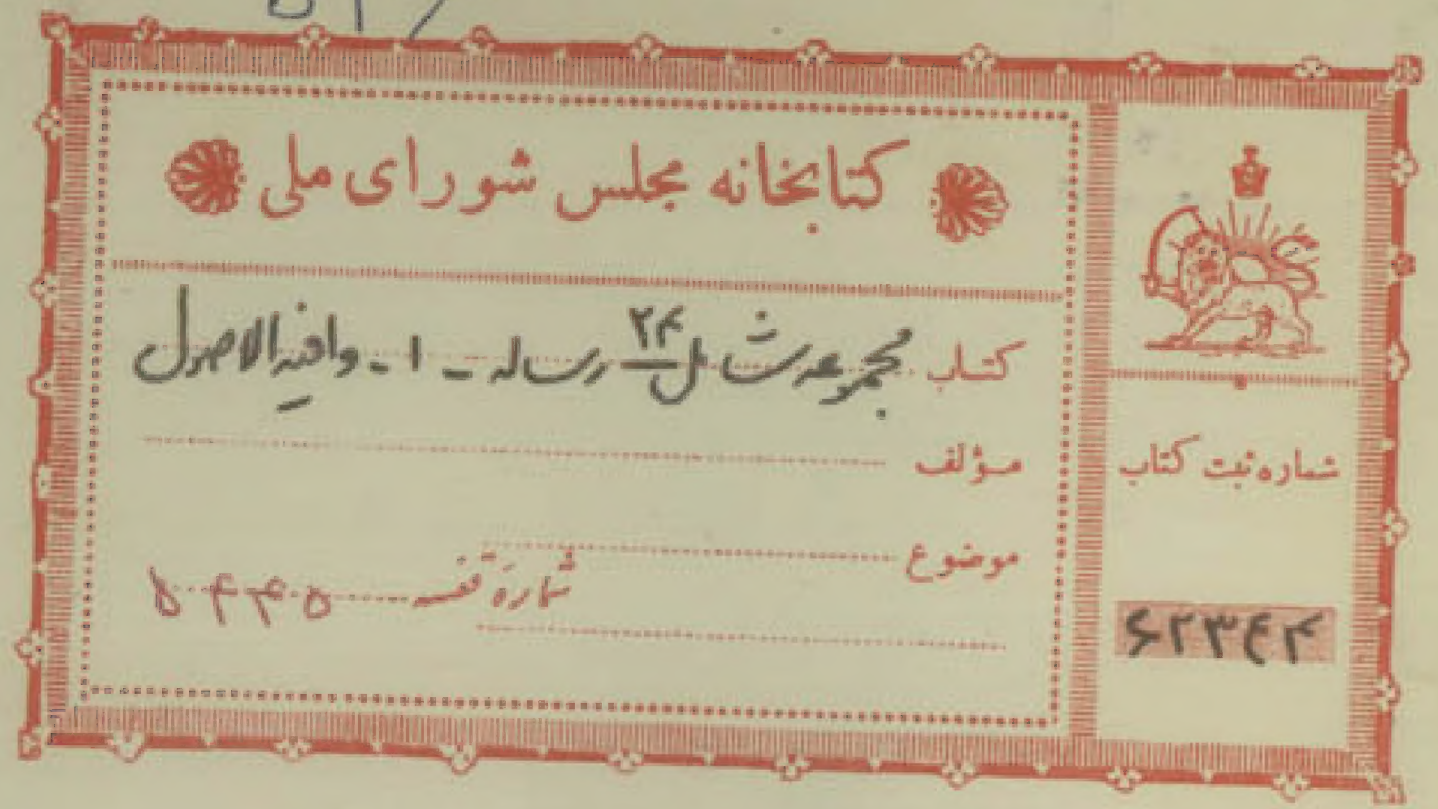 کتابخانه مجلس شورای ملی
کتاب مجموعه شامل ۲۴ رساله - ۱ - وافیه الاصول
مؤلف
موضوع
شماره قفسه ۵۴۴۵
شماره ثبت کتاب
۶۲۳۴۴